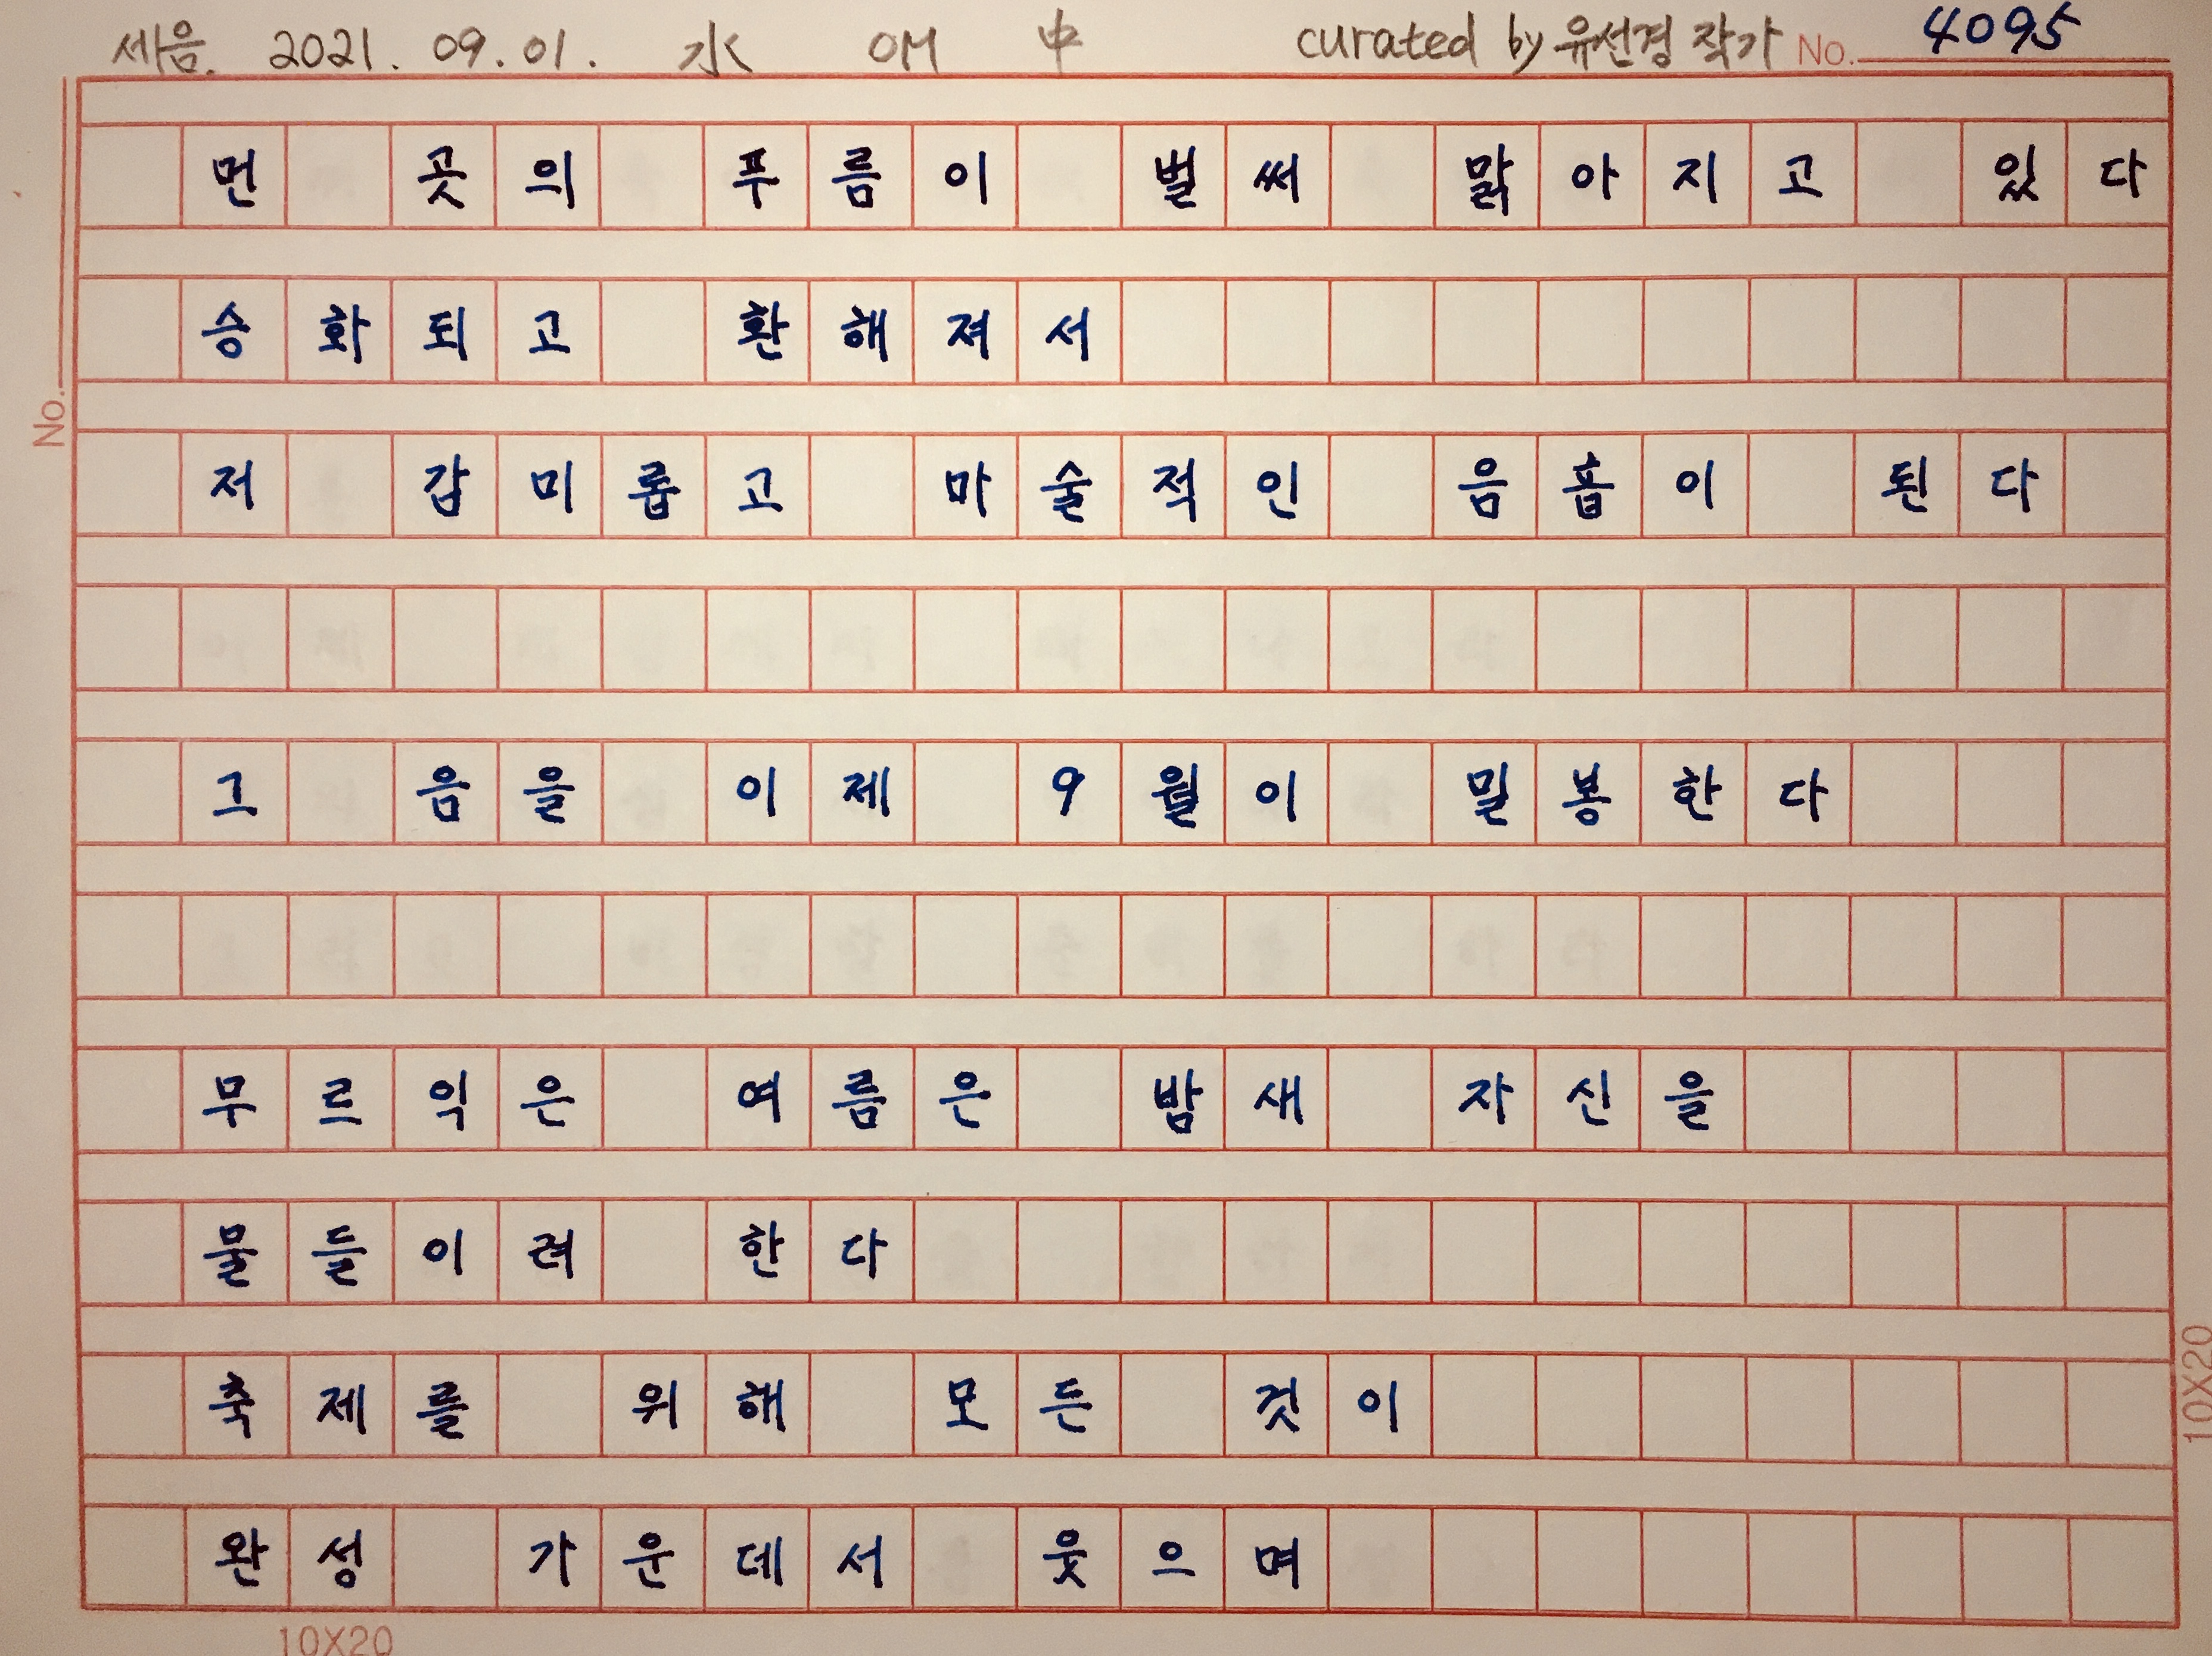 세음. 2021. 09. 01. 水 OM 中 curated by 유선경 작가 No. 4095
먼 곳의 푸름이 벌써 맑아지고 있다
승화되고 환해져서
No.
저 감미롭고 마술적인 음흡이 된다
그 음을 이제 9월이 밀봉한다
무르익은 여름은 밤새 자신을
물들이려 한다
축제를 위해 모든 것이
10X20
완성 가운데서 웃으며
10X20